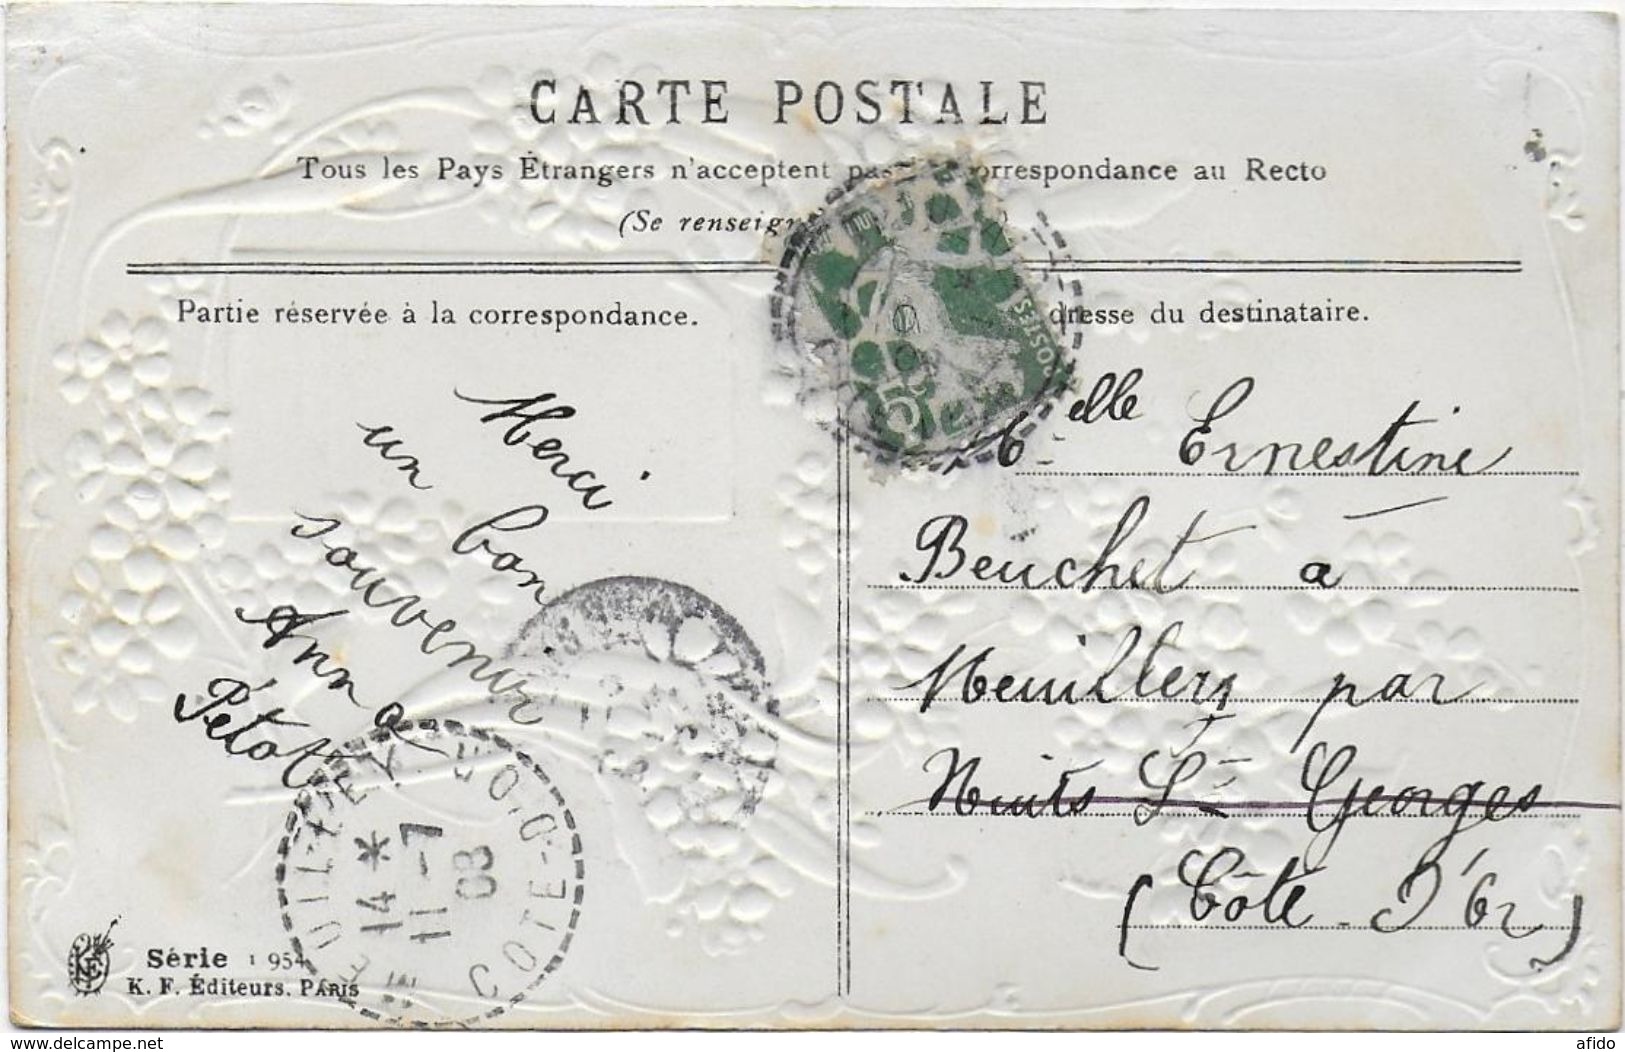 CARTE POSTALE
Tous les Pays Étrangers n'acceptent pas orrespondance au Recto
(Se renseign
Partie réservée à la correspondance.
dresse du destinataire.
Merci
un bon
souvenir
Anna
Pétot
elle Ernestine
Beuchet à
Meuilley par
Nuits St Georges
(Côte-D'Or)
POSTES
5
MEUILLEY COTE-D'OR
14 *
11-7
08
Série 1954
K. F. Éditeurs. PARIS
www.delcampe.net
afido